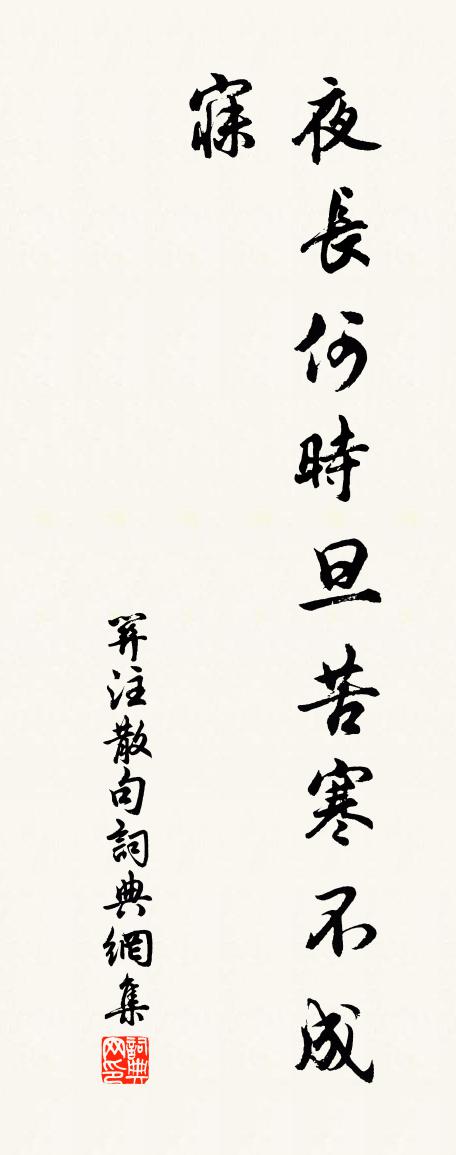 夜長何時旦苦寒不成
寐
笄注散句詞典網集
詞典
网印